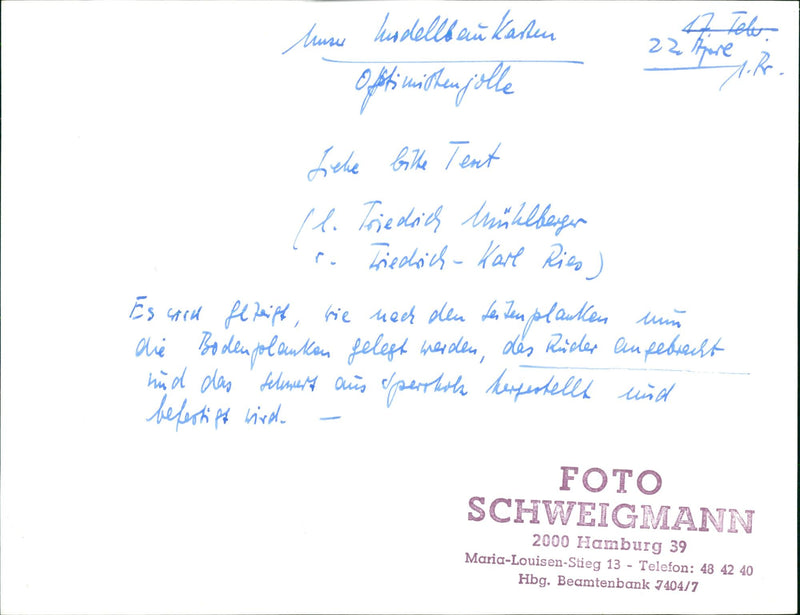 Unser Modellbaukasten
Optimistenjolle
17. Febr.
22. April
1. Pr.
Siehe bitte Text
(l. Friedrich Mühlberger
r. Friedrich-Karl Ries)
Es wird gezeigt, wie nach den Seitenplanken nun
die Bodenplanken gelegt werden, das Ruder angebracht
und das Schwert aus Sperrholz hergestellt und
befestigt wird. —
FOTO
SCHWEIGMANN
2000 Hamburg 39
Maria-Louisen-Stieg 13 - Telefon: 48 42 40
Hbg. Beamtenbank 7404/7